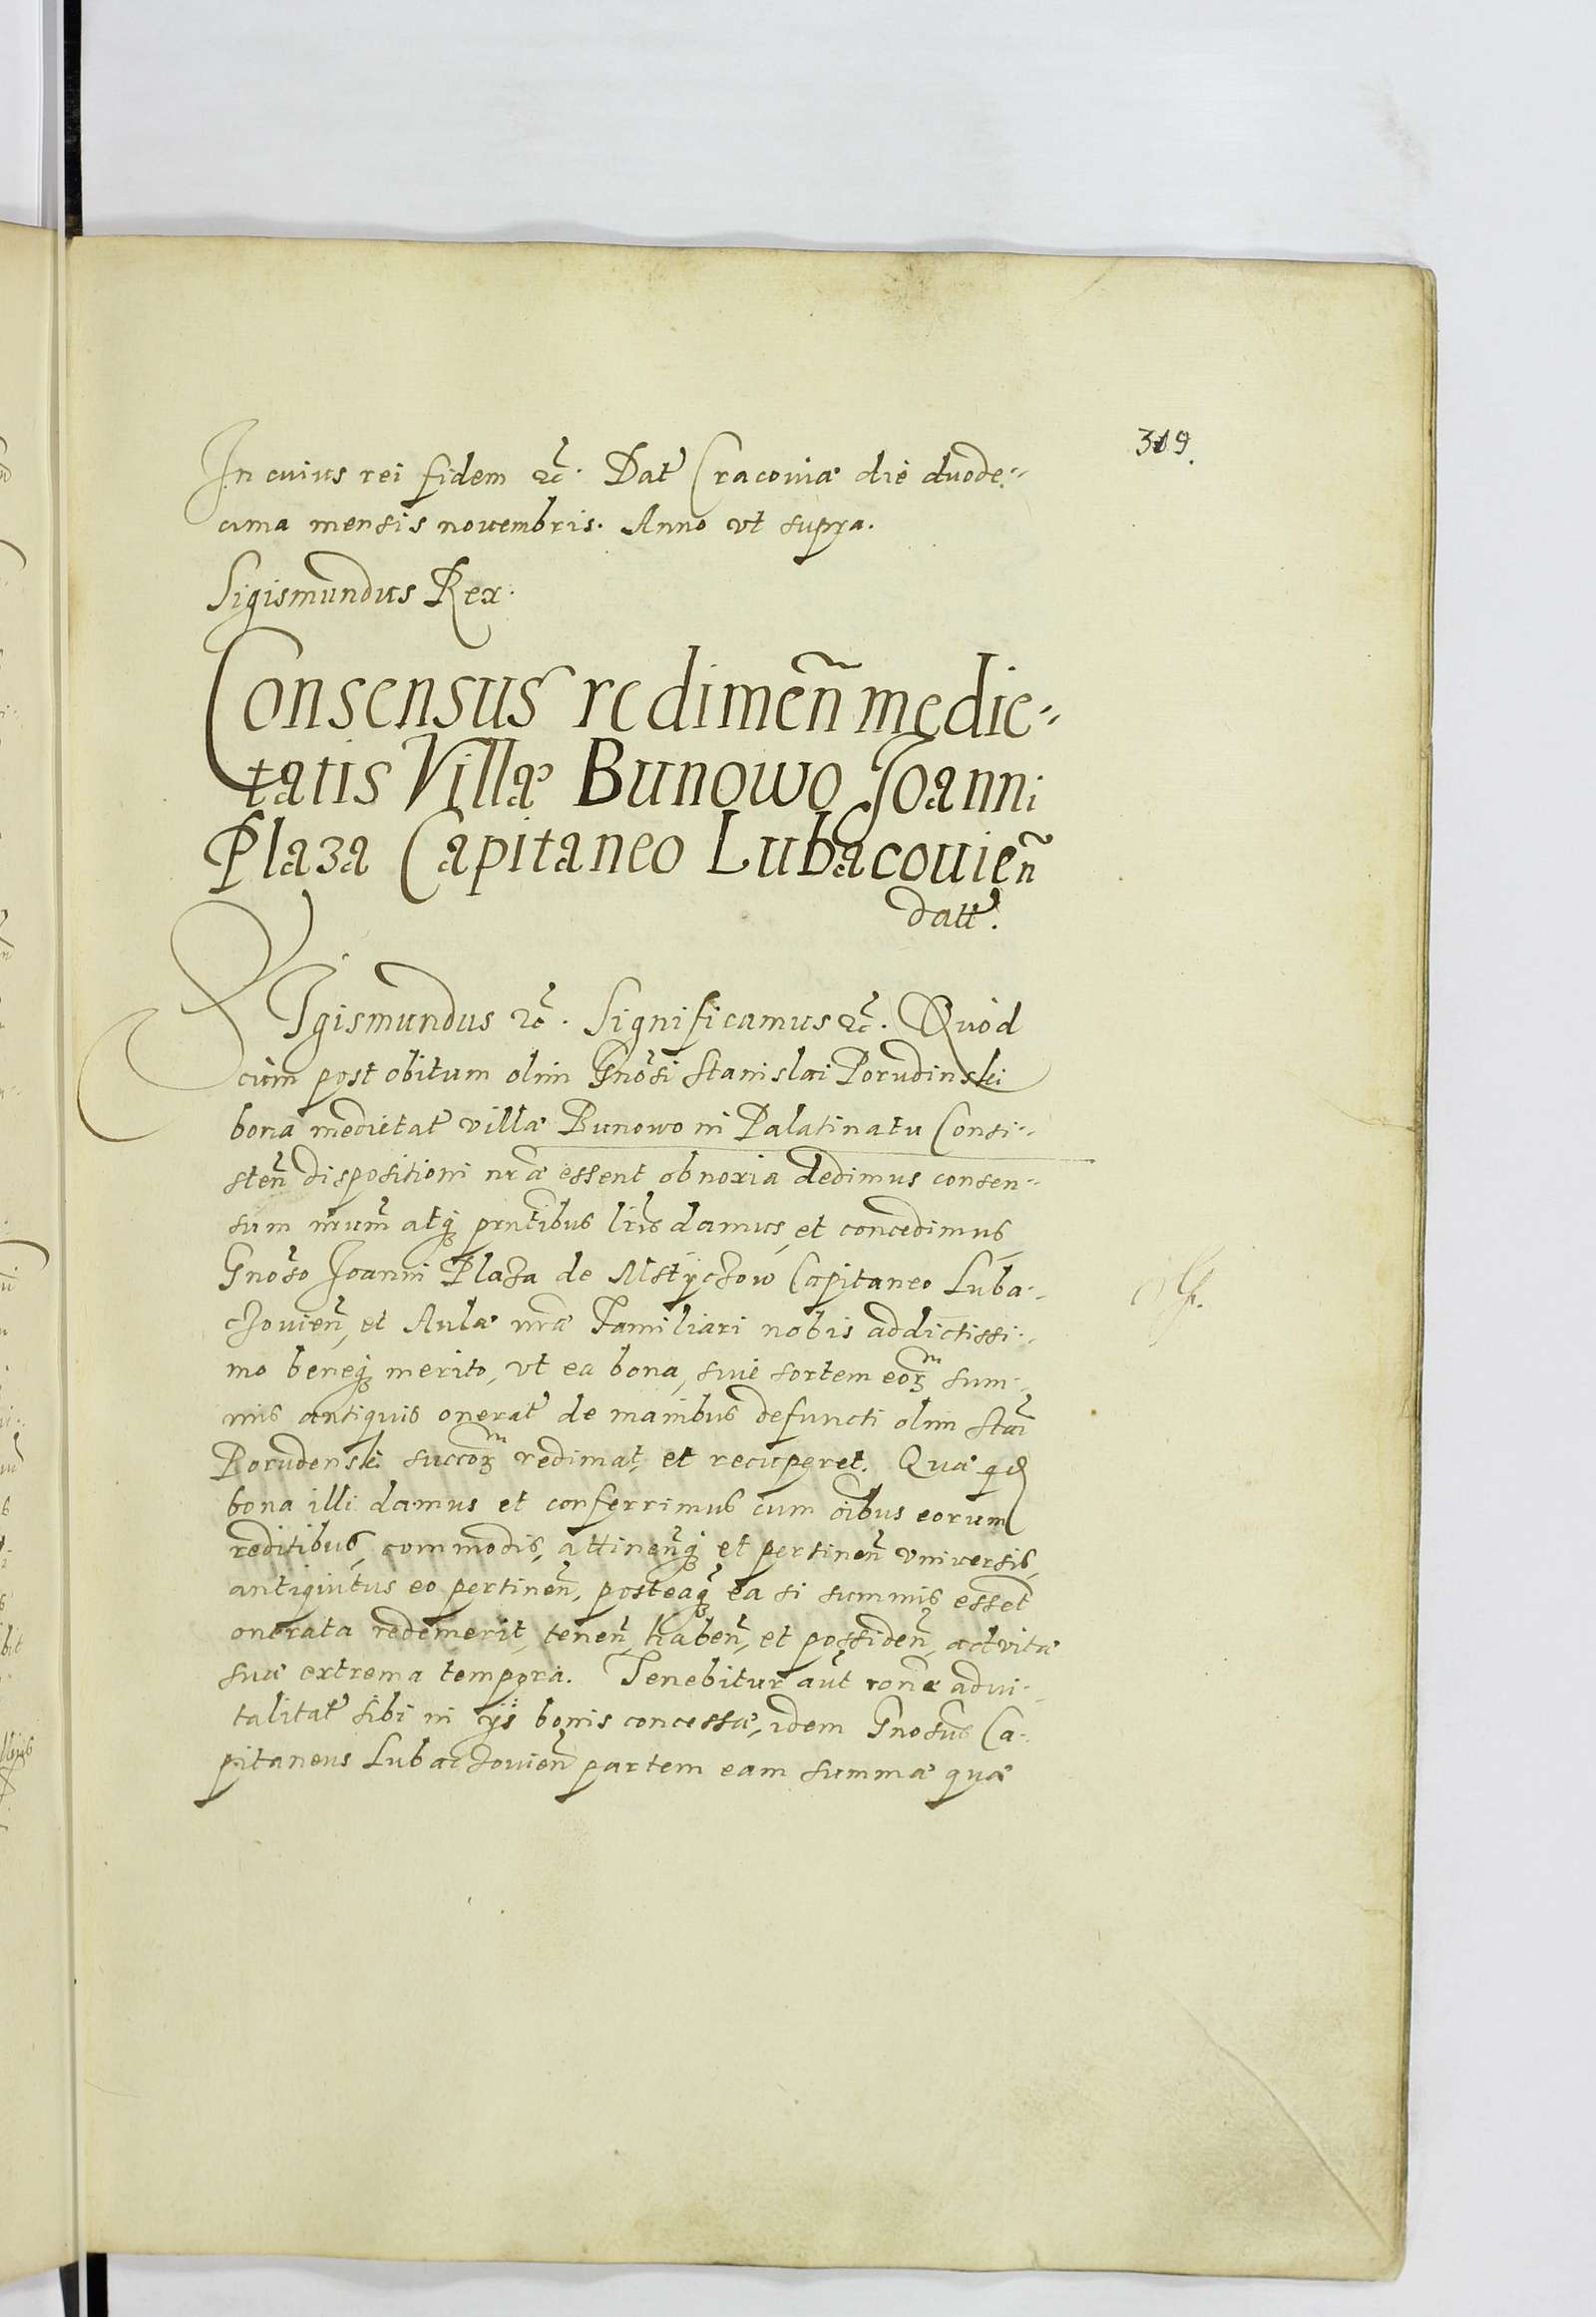 319.
In cuius rei fidem &c̃. Dat̃ Cracouiæ die duode=
cima mensis nouembris. Anno vt supra.
Sigismundus Rex.
Consensus redimeñ medie=
tatis Villæ Bunowo Joanni
Plaza Capitaneo Lubacouieñ
datt̃.
SIgismundus &c̃. Significamus &c̃. Quòd
cùm post obitum olim Gnõsi Stanislai Porudinski
bona medietat̃ villæ Bunowo in Palatinatu Consi=
steñ dispositioni nræ̃ essent obnoxia dedimus consen=
sum nrum̃ atq₃ prñtibus lrĩs damus, et concedimus
Gnõso Joanni Plaza de Mstyczow Capitaneo Luba=
czouieñ, et Aulæ nræ̃ Familiari nobis addictissi=
mo beneq₃ merito, vt ea bona, siue sortem eoꝝ sum=
mis antiquis onerat̃ de manibus defuncti olim Stañi
Porudenski succoꝝ redimat, et recuperet. Quæ qd
bona illi damus et conferrimus cum oĩbus eorum
reditibus, commodis, attineñq₃ et pertineñ vniuersis,
antiquitus eo pertineñ, posteaq₃ ea si summis essent
onerata redemerit, teneñ, habeñ, et possideñ, ad vitæ
suæ extrema tempora. Tenebitur aũt rone advi=
talitat̃ sibi in ijs bonis concessæ, idem Gnosus Ca=
pitaneus Lubaczouieñ partem eam summæ quæ